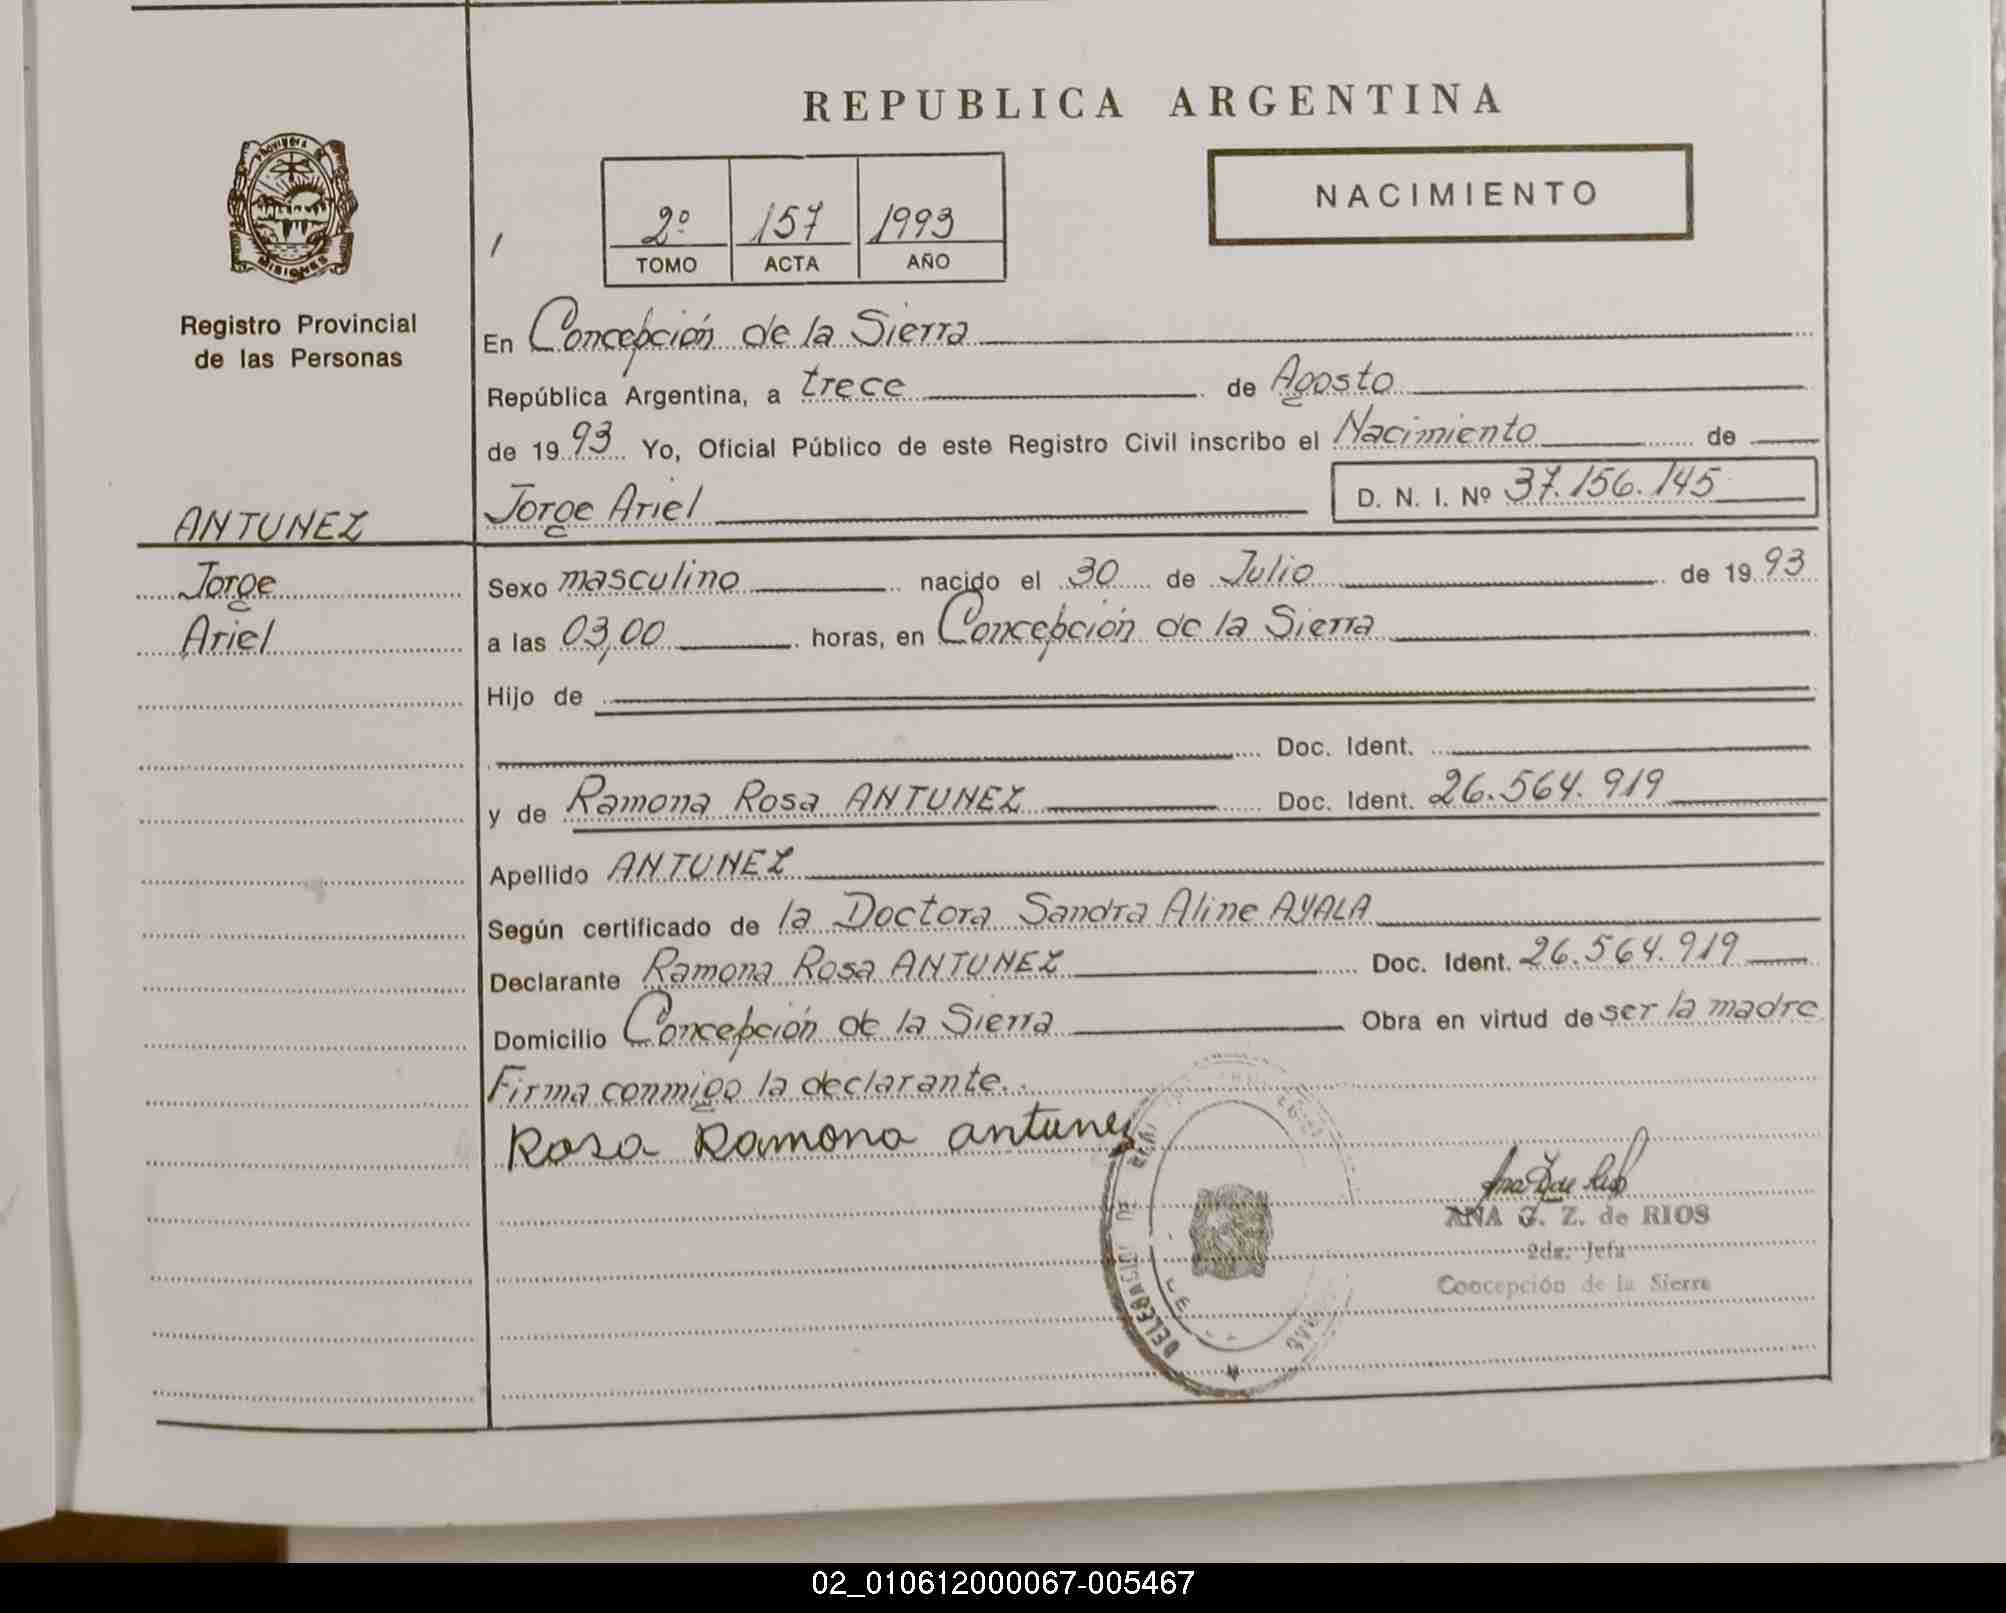 REPUBLICA ARGENTINA
PROVINCIA
MISIONES
Registro Provincial
de las Personas
2º 157 1993
TOMO ACTA AÑO
NACIMIENTO
En Concepción de la Sierra
República Argentina, a trece de Agosto
de 1993 Yo, Oficial Público de este Registro Civil inscribo el Nacimiento de
Jorge Ariel D. N. I. Nº 37.156.145
ANTUNEZ
Jorge
Ariel
Sexo masculino nacido el 30 de Julio de 1993
a las 03,00 horas, en Concepción de la Sierra
Hijo de
Doc. Ident.
y de Ramona Rosa ANTUNEZ Doc. Ident. 26.564.919
Apellido ANTUNEZ
Según certificado de la Doctora Sandra Aline AYALA
Declarante Ramona Rosa ANTUNEZ Doc. Ident. 26.564.919
Domicilio Concepción de la Sierra Obra en virtud de ser la madre
Firma conmigo la declarante.
Rosa Ramona antunez
ANA G. Z. de RIOS
2da. Jefa
Concepción de la Sierra
02_010612000067-005467